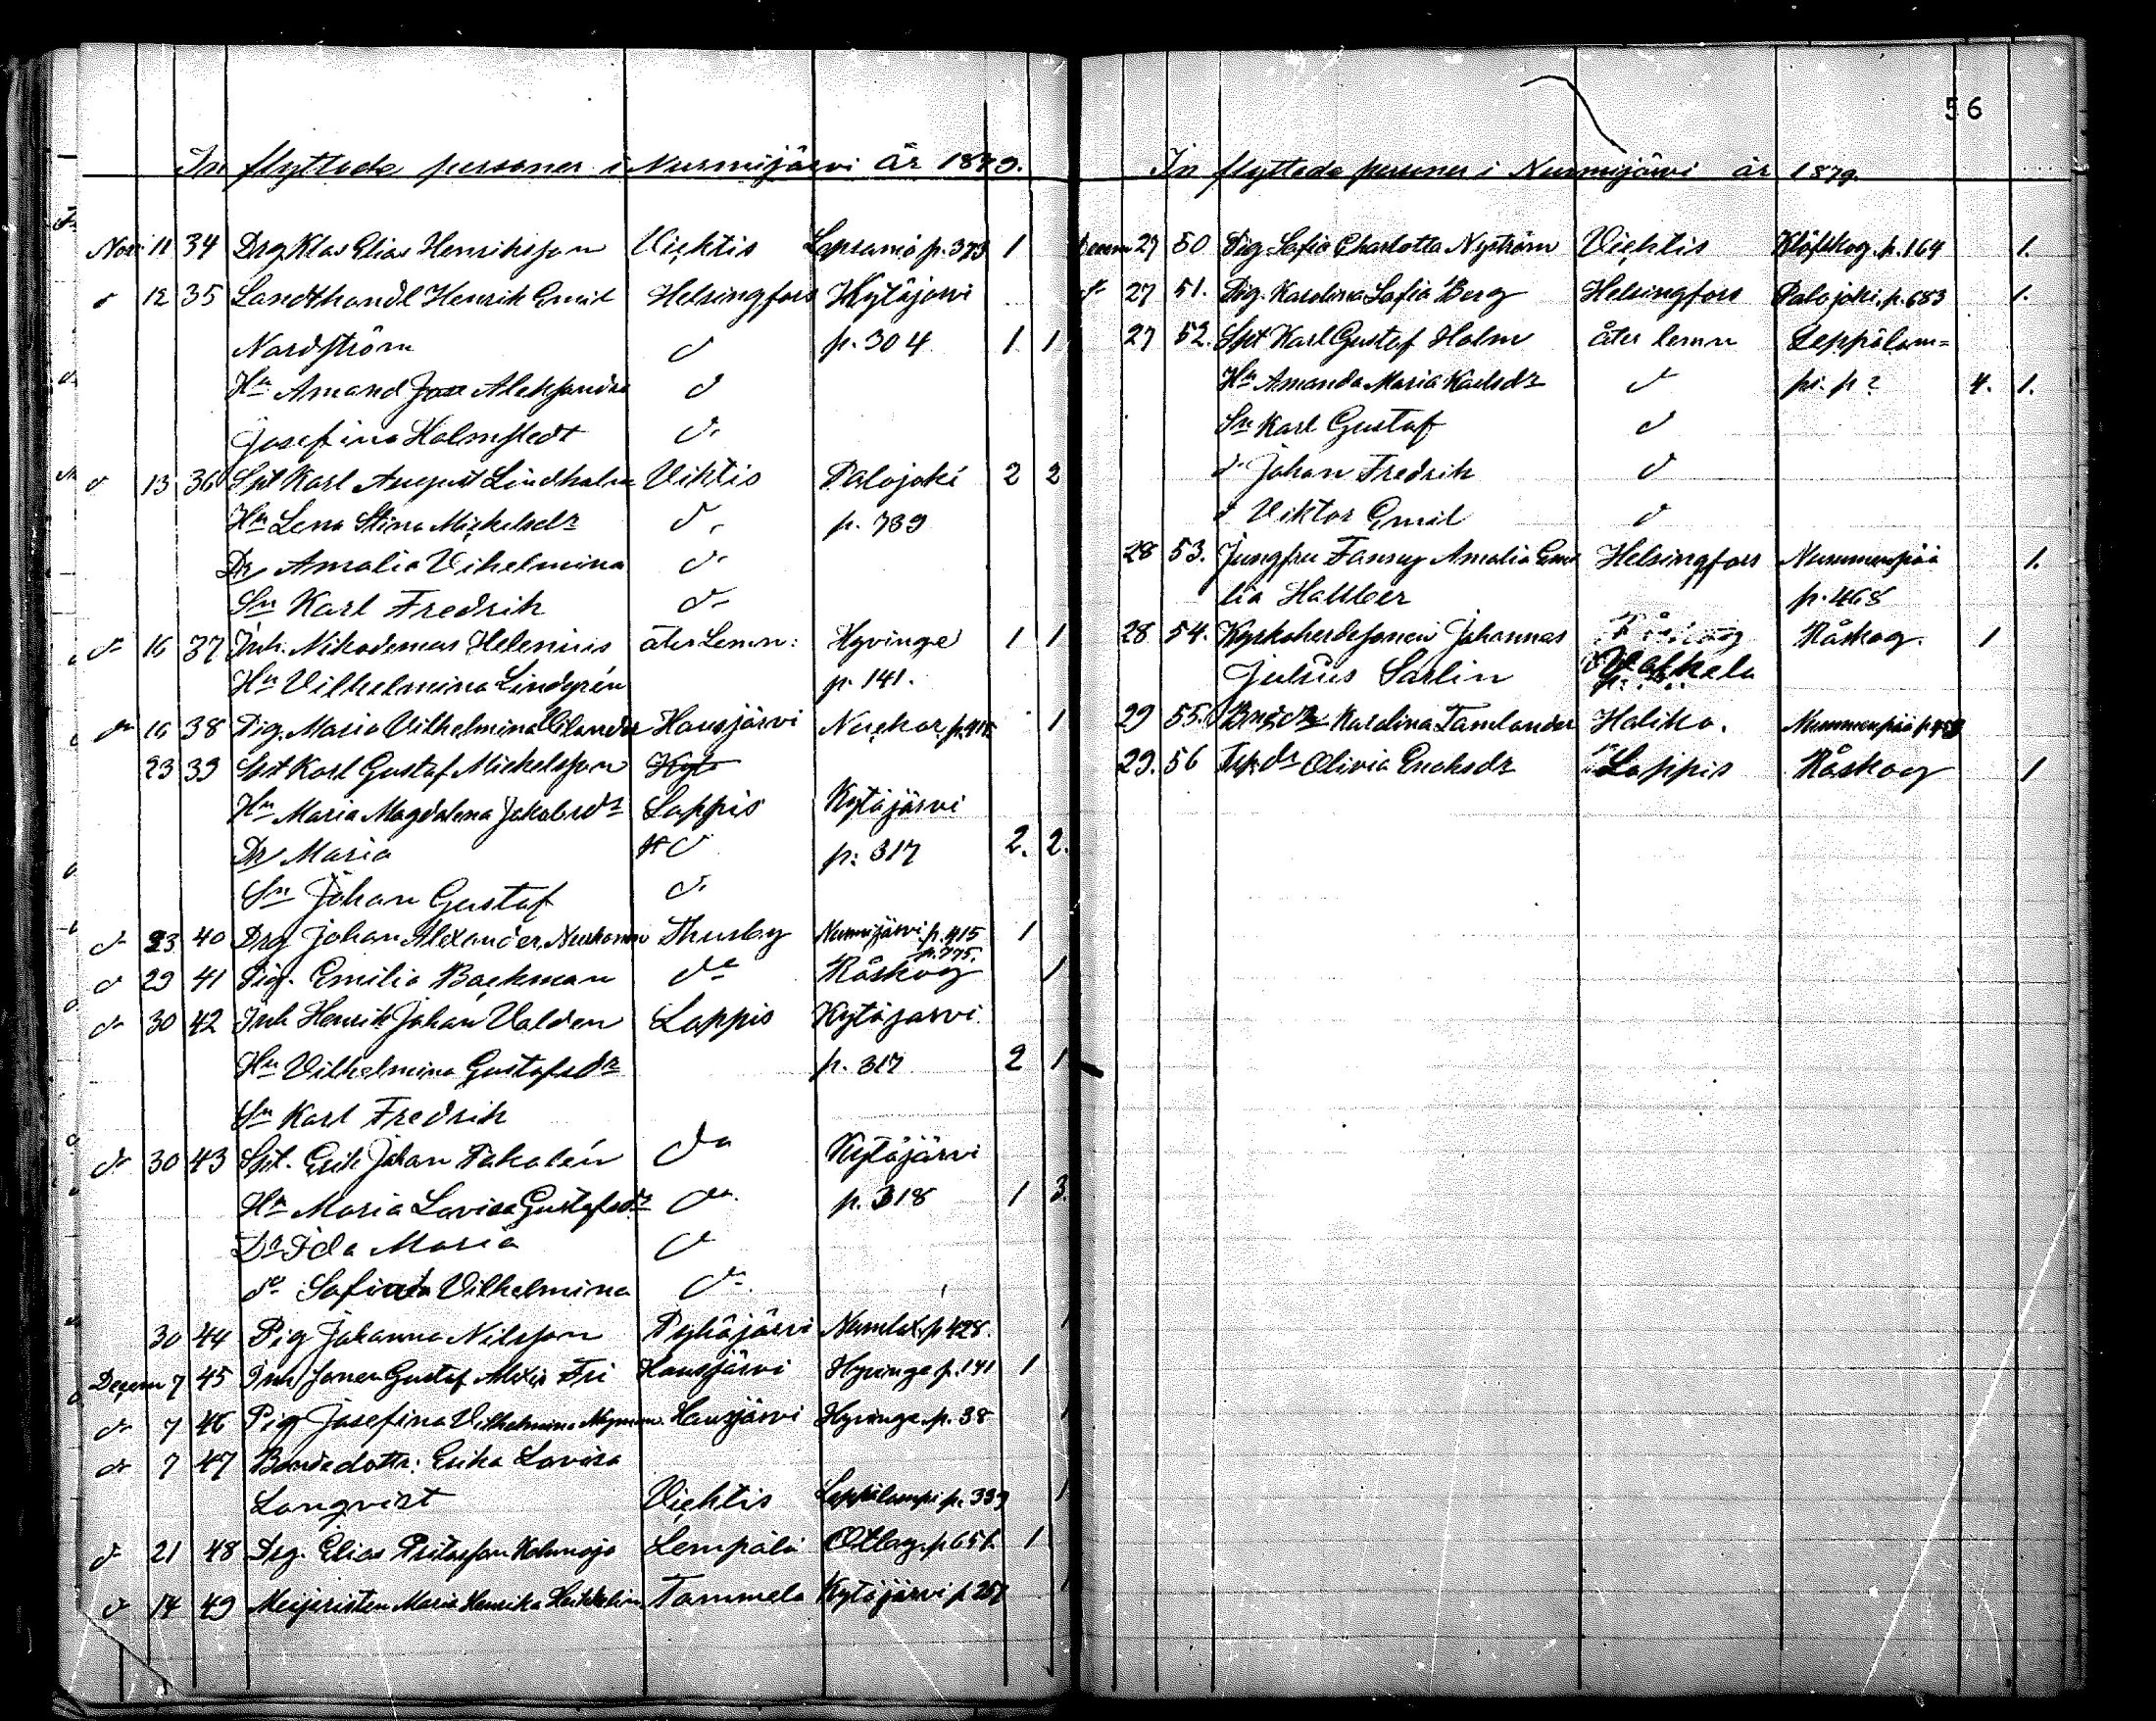 In flyttade personer i Nurmijärvi År 1879.
Nov. 11 34 Drg Klas Elias Henriksson Vichtis Lepsamä p. 373 1
d 12 35 Landthandl Henrik Emil Helsingfors Kytäjärvi
Nordström d p. 304 1 1
Hu Amand Jose Aleksandra d
Josefina Holmstedt d
d 13 36 Spt Karl August Lindholm Vihtis Palojoki 2 2
Hu Lena Stina Michelsdr d p. 789
Dr Amalia Vilhelmina d
Sn Karl Fredrik d
d 16 37 Inh. Nikodemus Helenius åter Lemn: Hyvinge 1 1
Hu Vilhelmina Lindgrén p. 141.
d 16 38 Pig. Maria Vilhelmina Hausjärvi 1
23 39 Spt Karl Gustaf Michelsson Kyt
Hu Maria Magdalena Jakobsdr Loppis Kytäjärvi
Dr Maria d p: 317 2. 2.
Sn Johan Gustaf d
d 23 40 Drg Johan Alexander Thusby Nurmijärvi p. 415 1
p. 775.
d 29 41 Pig. Emilia Backman do Råskog 1
d 30 42 Inh Henrik Johan Valden Loppis Kytäjärvi
Hu Vilhelmina Gustafsdr p. 317 2 1
Sn Karl Fredrik
d 30 43 Spt. Erik Johan do Kytäjärvi
Hu Maria Lovisa Gustafsdr do p. 318 1 3.
Dr Ida Maria d
do Sofia Vilhelmina d
30 44 Pig Johanna Nilsson Pyhäjärvi Numlax p 428. 1
Decem 7 45 Gustaf Alexis Fri Hausjärvi Hyvinge p. 141 1
d 7 46 Pig Josefina Vilhelmina Nyman Hausjärvi Hyvinge p. 38 1
d 7 47 Bondedottr: Erika Lovisa
Lönqvist Vichtis Leppälampi p. 339 1
d 21 48 Drg. Elias Lempälä Ollag. p 651. 1
d 14 49 Meijeristen Maria Henrika Tammela Kytäjärvi p 257 1
56
In flyttade personer i Nurmijärvi år 1879.
Decem 27 50 Pig. Sofia Charlotta Nyström Vichtis Klöfskog p. 164 1.
d 27 51. Pig. Karolina Sofia Berg Helsingfors Palojoki p. 683 1.
27 52. Spt Karl Gustaf Holm åter lemn Leppälam=
Hu Amanda Maria Karlsdr d pi. p ? 4. 1.
Sn Karl Gustaf d
d Johan Fredrik d
d Viktor Emil d
28 53. Jungfru Fanny Amalia Emi Helsingfors Nummenpää 1.
lia p. 468
28 54. Kyrkoherdesonen Johannes Råskog. 1
Julius Sarlin
29 55. Karolina Tamlander Haliko. Nummenpää
29. 56 Olivia Eriksdr Loppis Råskog 1